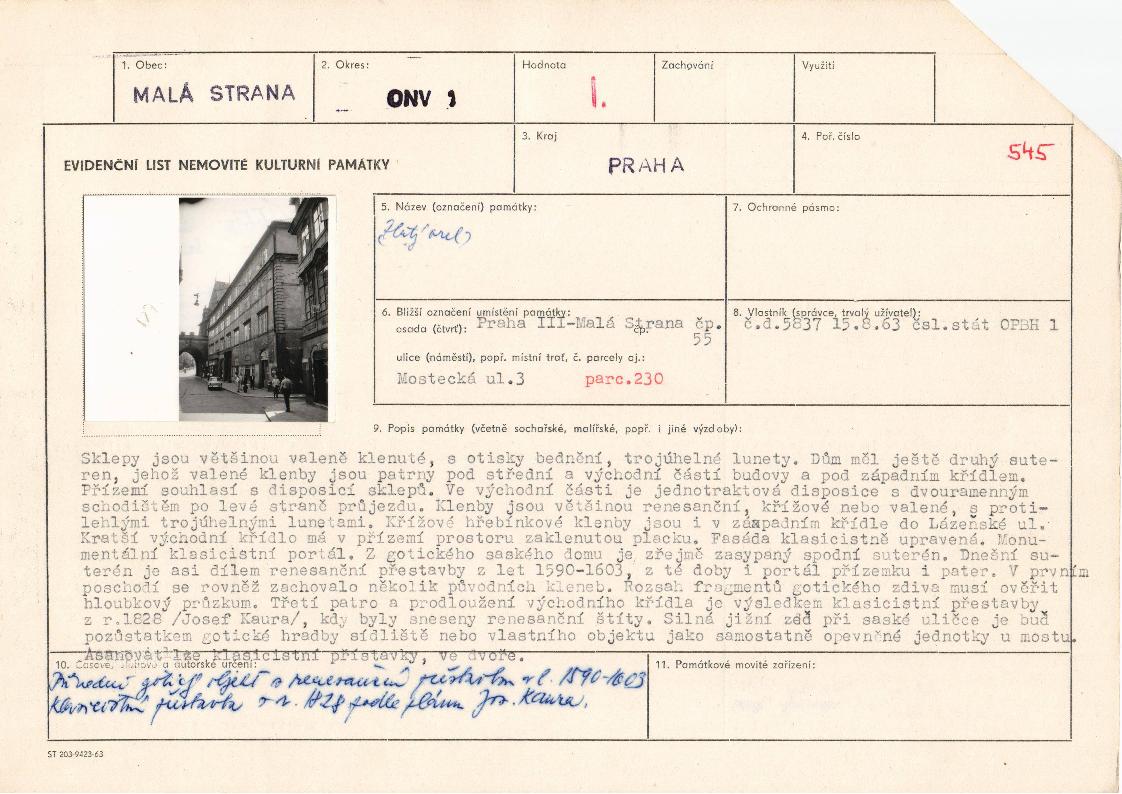 1. Obec:
MALÁ STRANA
2. Okres:
ONV 1
Hodnota
I.
Zachování
Využití
EVIDENČNÍ LIST NEMOVITÉ KULTURNÍ PAMÁTKY
3. Kraj
PRAHA
4. Poř. číslo
545
5. Název (označení) památky:
(Zlatý orel)
7. Ochranné pásmo:
6. Bližší označení umístění památky:
osada (čtvrť): Praha III-Malá Strana čp.
čp.
55
ulice (náměstí), popř. místní trať, č. parcely aj.:
Mostecká ul.3 parc.230
8. Vlastník (správce, trvalý uživatel):
č.d.5837 15.8.63 čsl.stát OPBH 1
9. Popis památky (včetně sochařské, malířské, popř. i jiné výzdoby):
Sklepy jsou většinou valeně klenuté, s otisky bednění, trojúhelné lunety. Dům měl ještě druhý sute-
ren, jehož valené klenby jsou patrny pod střední a východní částí budovy a pod západním křídlem.
Přízemí souhlasí s disposicí sklepů. Ve východní části je jednotraktová disposice s dvouramenným
schodištěm po levé straně průjezdu. Klenby jsou většinou renesanční, křížové nebo valené, s proti-
lehlými trojúhelnými lunetami. Křížové hřebínkové klenby jsou i v záspadním křídle do Lázeňské ul.
Kratší východní křídlo má v přízemí prostoru zaklenutou placku. Fasáda klasicistně upravená. Monu-
mentální klasicistní portál. Z gotického saského domu je zřejmě zasypaný spodní suterén. Dnešní su-
terén je asi dílem renesanční přestavby z let 1590-1603, z té doby i portál přízemku i pater. V prvním
poschodí se rovněž zachovalo několik původních kleneb. Rozsah fragmentů gotického zdiva musí ověřit
hloubkový průzkum. Třetí patro a prodloužení východního křídla je výsledkem klasicistní přestavby
z r.1828 /Josef Kaura/, kdy byly sneseny renesanční štíty. Silná jižní zeď při saské uličce je buď
pozůstatkem gotické hradby sídliště nebo vlastního objektu jako samostatně opevněné jednotky u mostu.
Asanovat lze klasicistní přístavky, ve dvoře.
10. Časové, slohové a autorské určení:
Původní gotický objekt s renesanční přestavbou z l. 1590-1603
klasicistní přestavba z r. 1828 podle plánu Jos. Kaura.
11. Památkové movité zařízení:
ST 203-9423-63